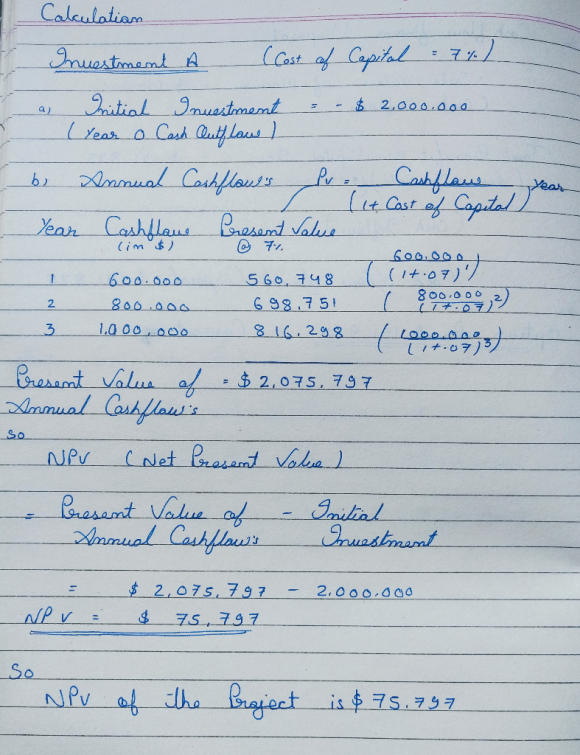 Calculation
Investment A (Cost of Capital = 7%)
a) Initial Investment = - $ 2,000.000
( Year 0 Cash Outflow )
b) Annual Cashflow's Pv = Cashflow
(1+ Cost of Capital) Year
Year Cashflow Present Value
(in $) @ 7%
600.000
1 600.000 560,748 ( (1+.07)¹ )
2 800.000 698,751 ( 800.000 / (1+.07)2 )
3 1.000,000 816.298 ( 1000.000 / (1+.07)3 )
Present Value of = $ 2,075,797
Annual Cashflow's
So
NPV ( Net Present Value )
= Present Value of - Initial
Annual Cashflow's Investment
= $ 2,075,797 - 2.000.000
NPV = $ 75,797
So
NPV of the Project is $ 75.797